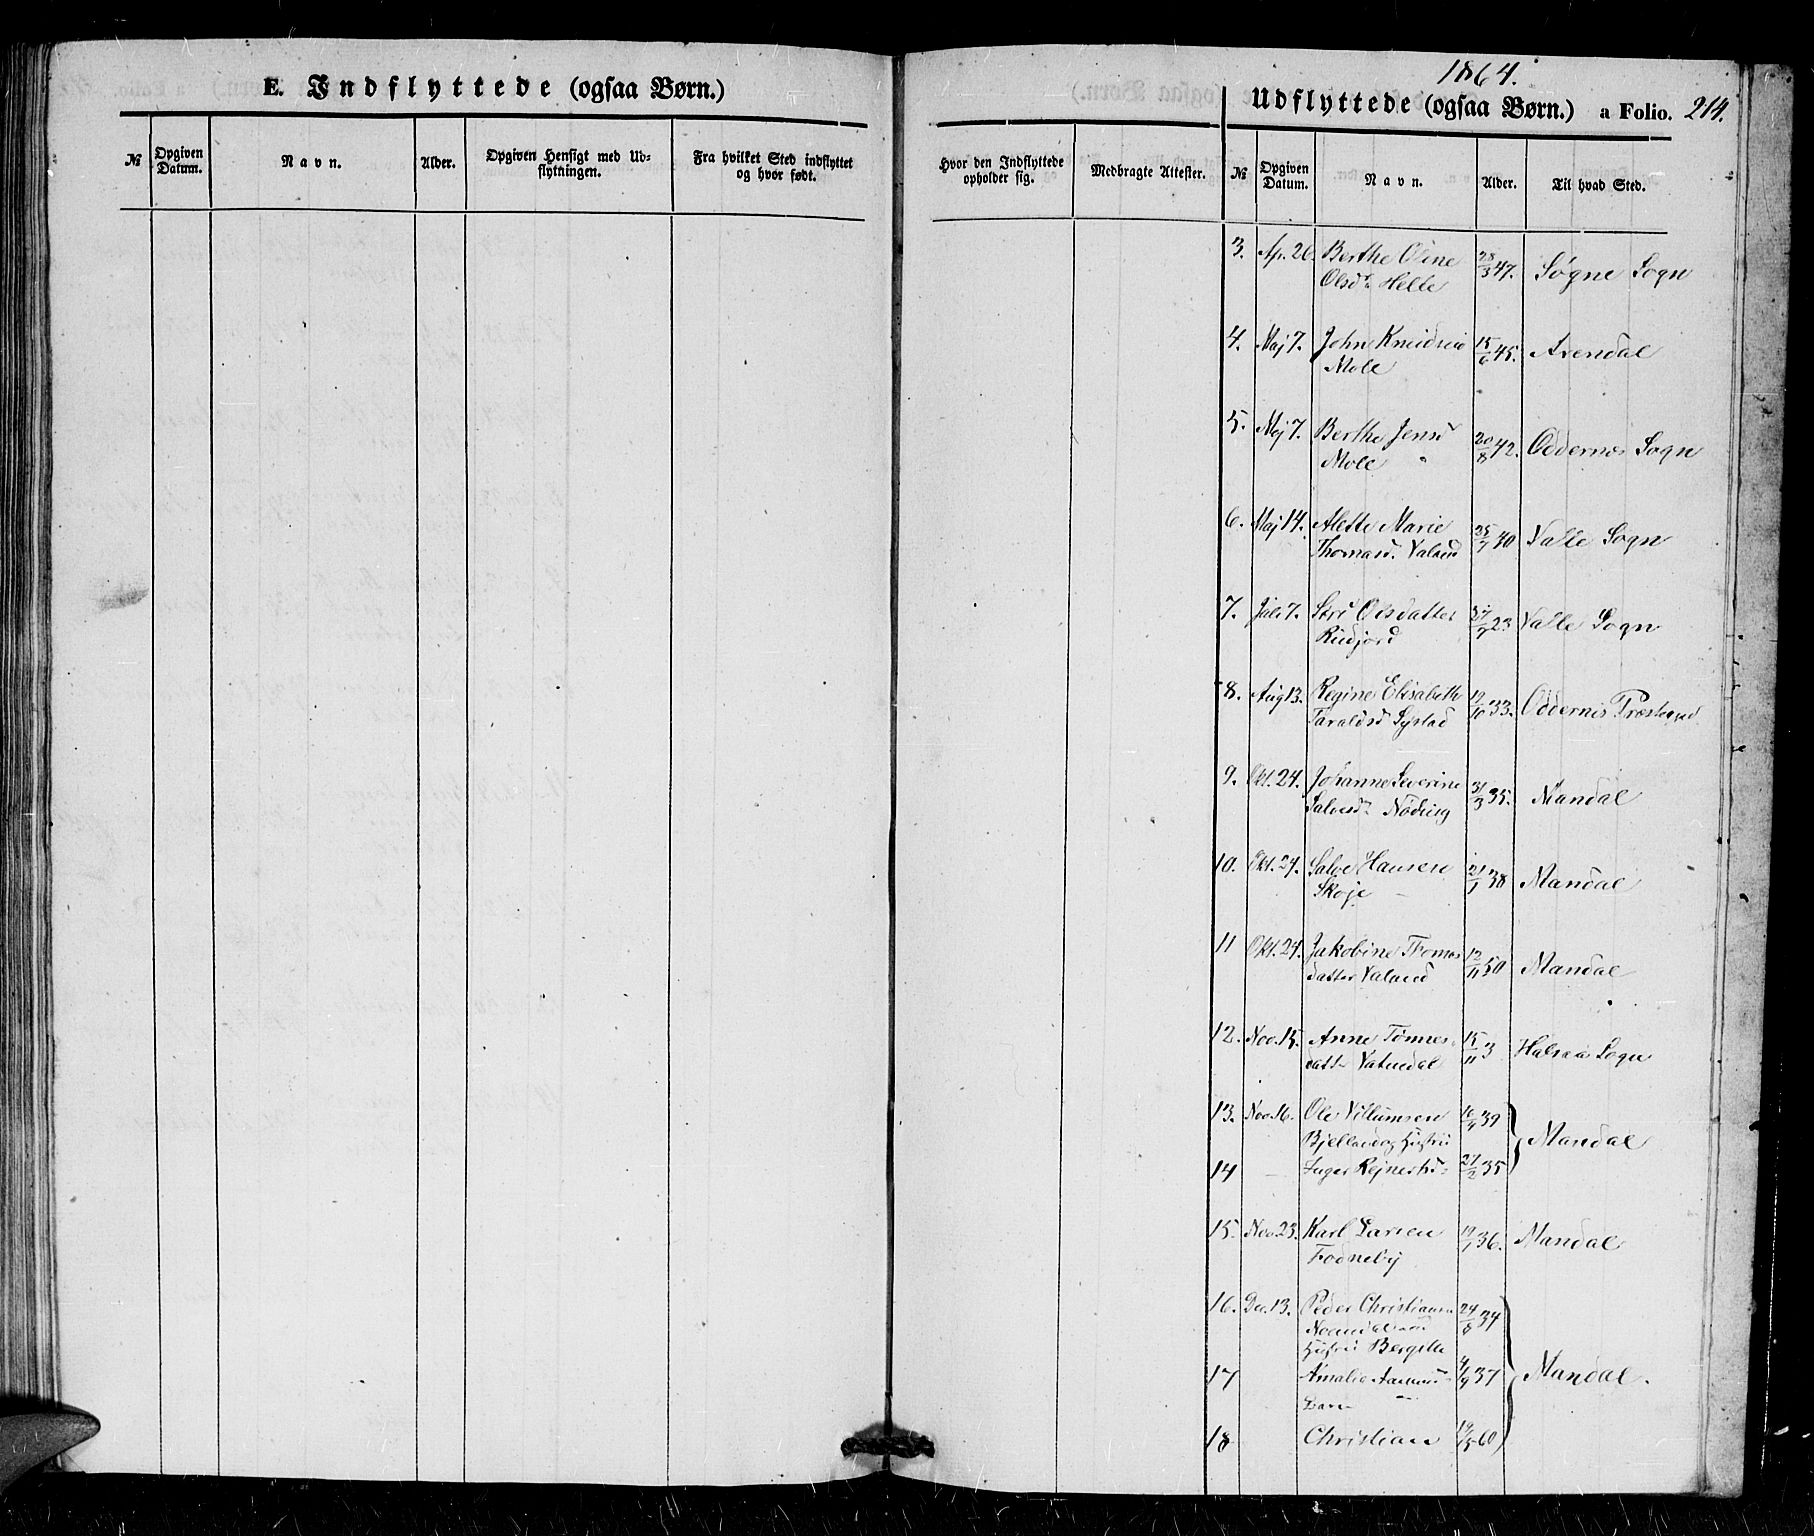 E. Indflyttede (ogsaa Børn.)
№
Opgiven Datum.
Navn.
Alder.
Opgiven Hensigt med Ud=
flytningen.
Fra hvilket Sted indflyttet
og hvor født.
1864.
Udflyttede (ogsaa Børn.) a Folio. 214.
Hvor den Indflyttede
opholder sig.
Medbragte Attester.
№
Opgiven Datum.
Navn.
Alder.
Til hvad Sted.
3. Ap. 26. Berthe Oline 28/3 47. Søgne Sogn
Olsdr Helle
4. Maj 7. John Knudsen 15/6 45. Arendal
Mole
5. Maj 7. Berthe Jensd 20/8 42. Oddernes Sogn
Mole
6. Maj 14. Alette Marie 25/7 40 Valle Sogn
Thomasd. Valand
7. Juli 7. Siri Olsdatter 27/7 23 Valle Sogn
8. Aug 13. Regine Elisabeth 12/10 33. Oddernes Præstegjeld
Taraldsd
9. Okt. 24. Johanne Severine 31/3 35. Mandal
Salvesdr Nøding
10. Okt. 24. Salve Hansen 21/1 38 Mandal
Skoje
11 Okt. 24. Jakobine Thomas 12/11 50 Mandal
datter Valand
12. Nov. 15. Anne Tønnes- 15/11 3 Halsaa Sogn
datter Vatnedal
13. Nov. 16. Ole Villumsen 16/4 39 Mandal
Bjelland og Hustru
14 - Inger 27/2 35
15. Nov. 23. Karl Larsen 19/1 36. Mandal
Fodneby
16. Dec. 13. Peder Christiansen 24/8 34
Hustru Bergitte
17 Amalie 4/9 37 Mandal.
Barn
18 Christian 19/5 60